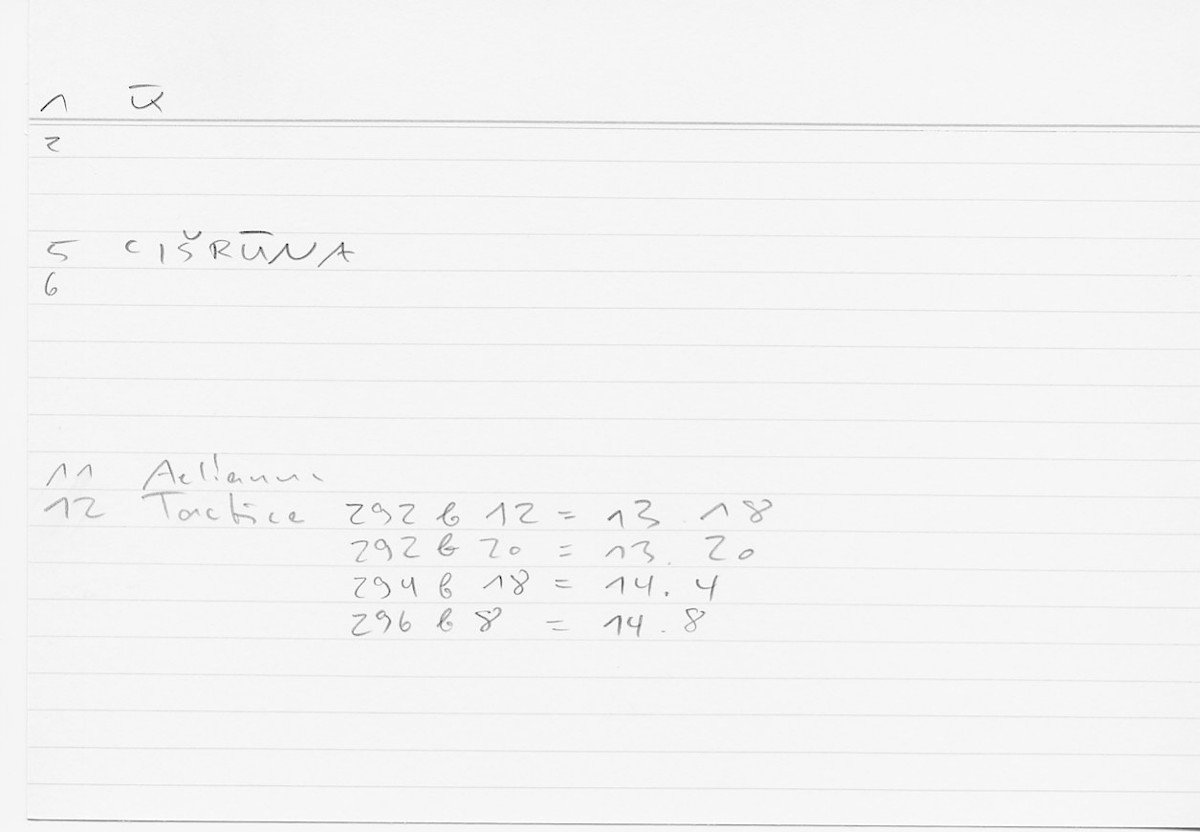 1 κ̄
2
5 cIŠRŪNA
6
11 Aelianus
12 Tactica 292 b 12 = 13.18
292 b 20 = 13.20
294 b 18 = 14.4
296 b 8 = 14.8